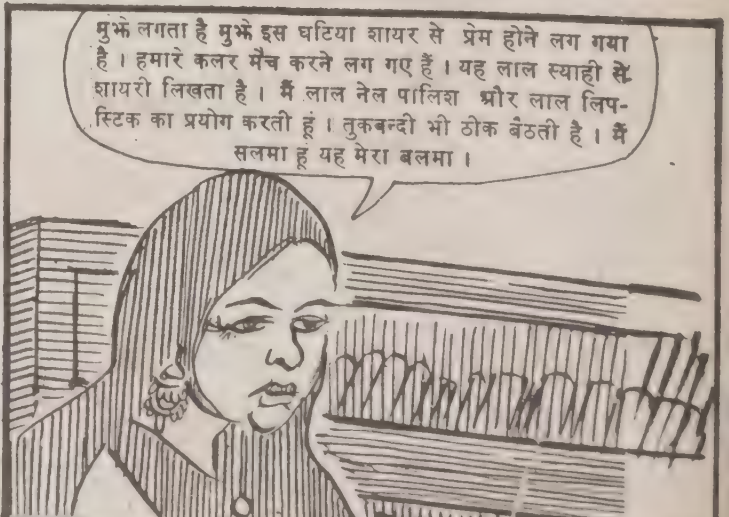 मुझे लगता है मुझे इस घटिया शायर से प्रेम होने लग गया
है । हमारे कलर मैच करने लग गए हैं । यह लाल स्याही से
शायरी लिखता है । मैं लाल नेल पालिश और लाल लिप-
स्टिक का प्रयोग करती हूं । तुकबन्दी भी ठोक बैठती है । मैं
सलमा हूं यह मेरा बलमा ।